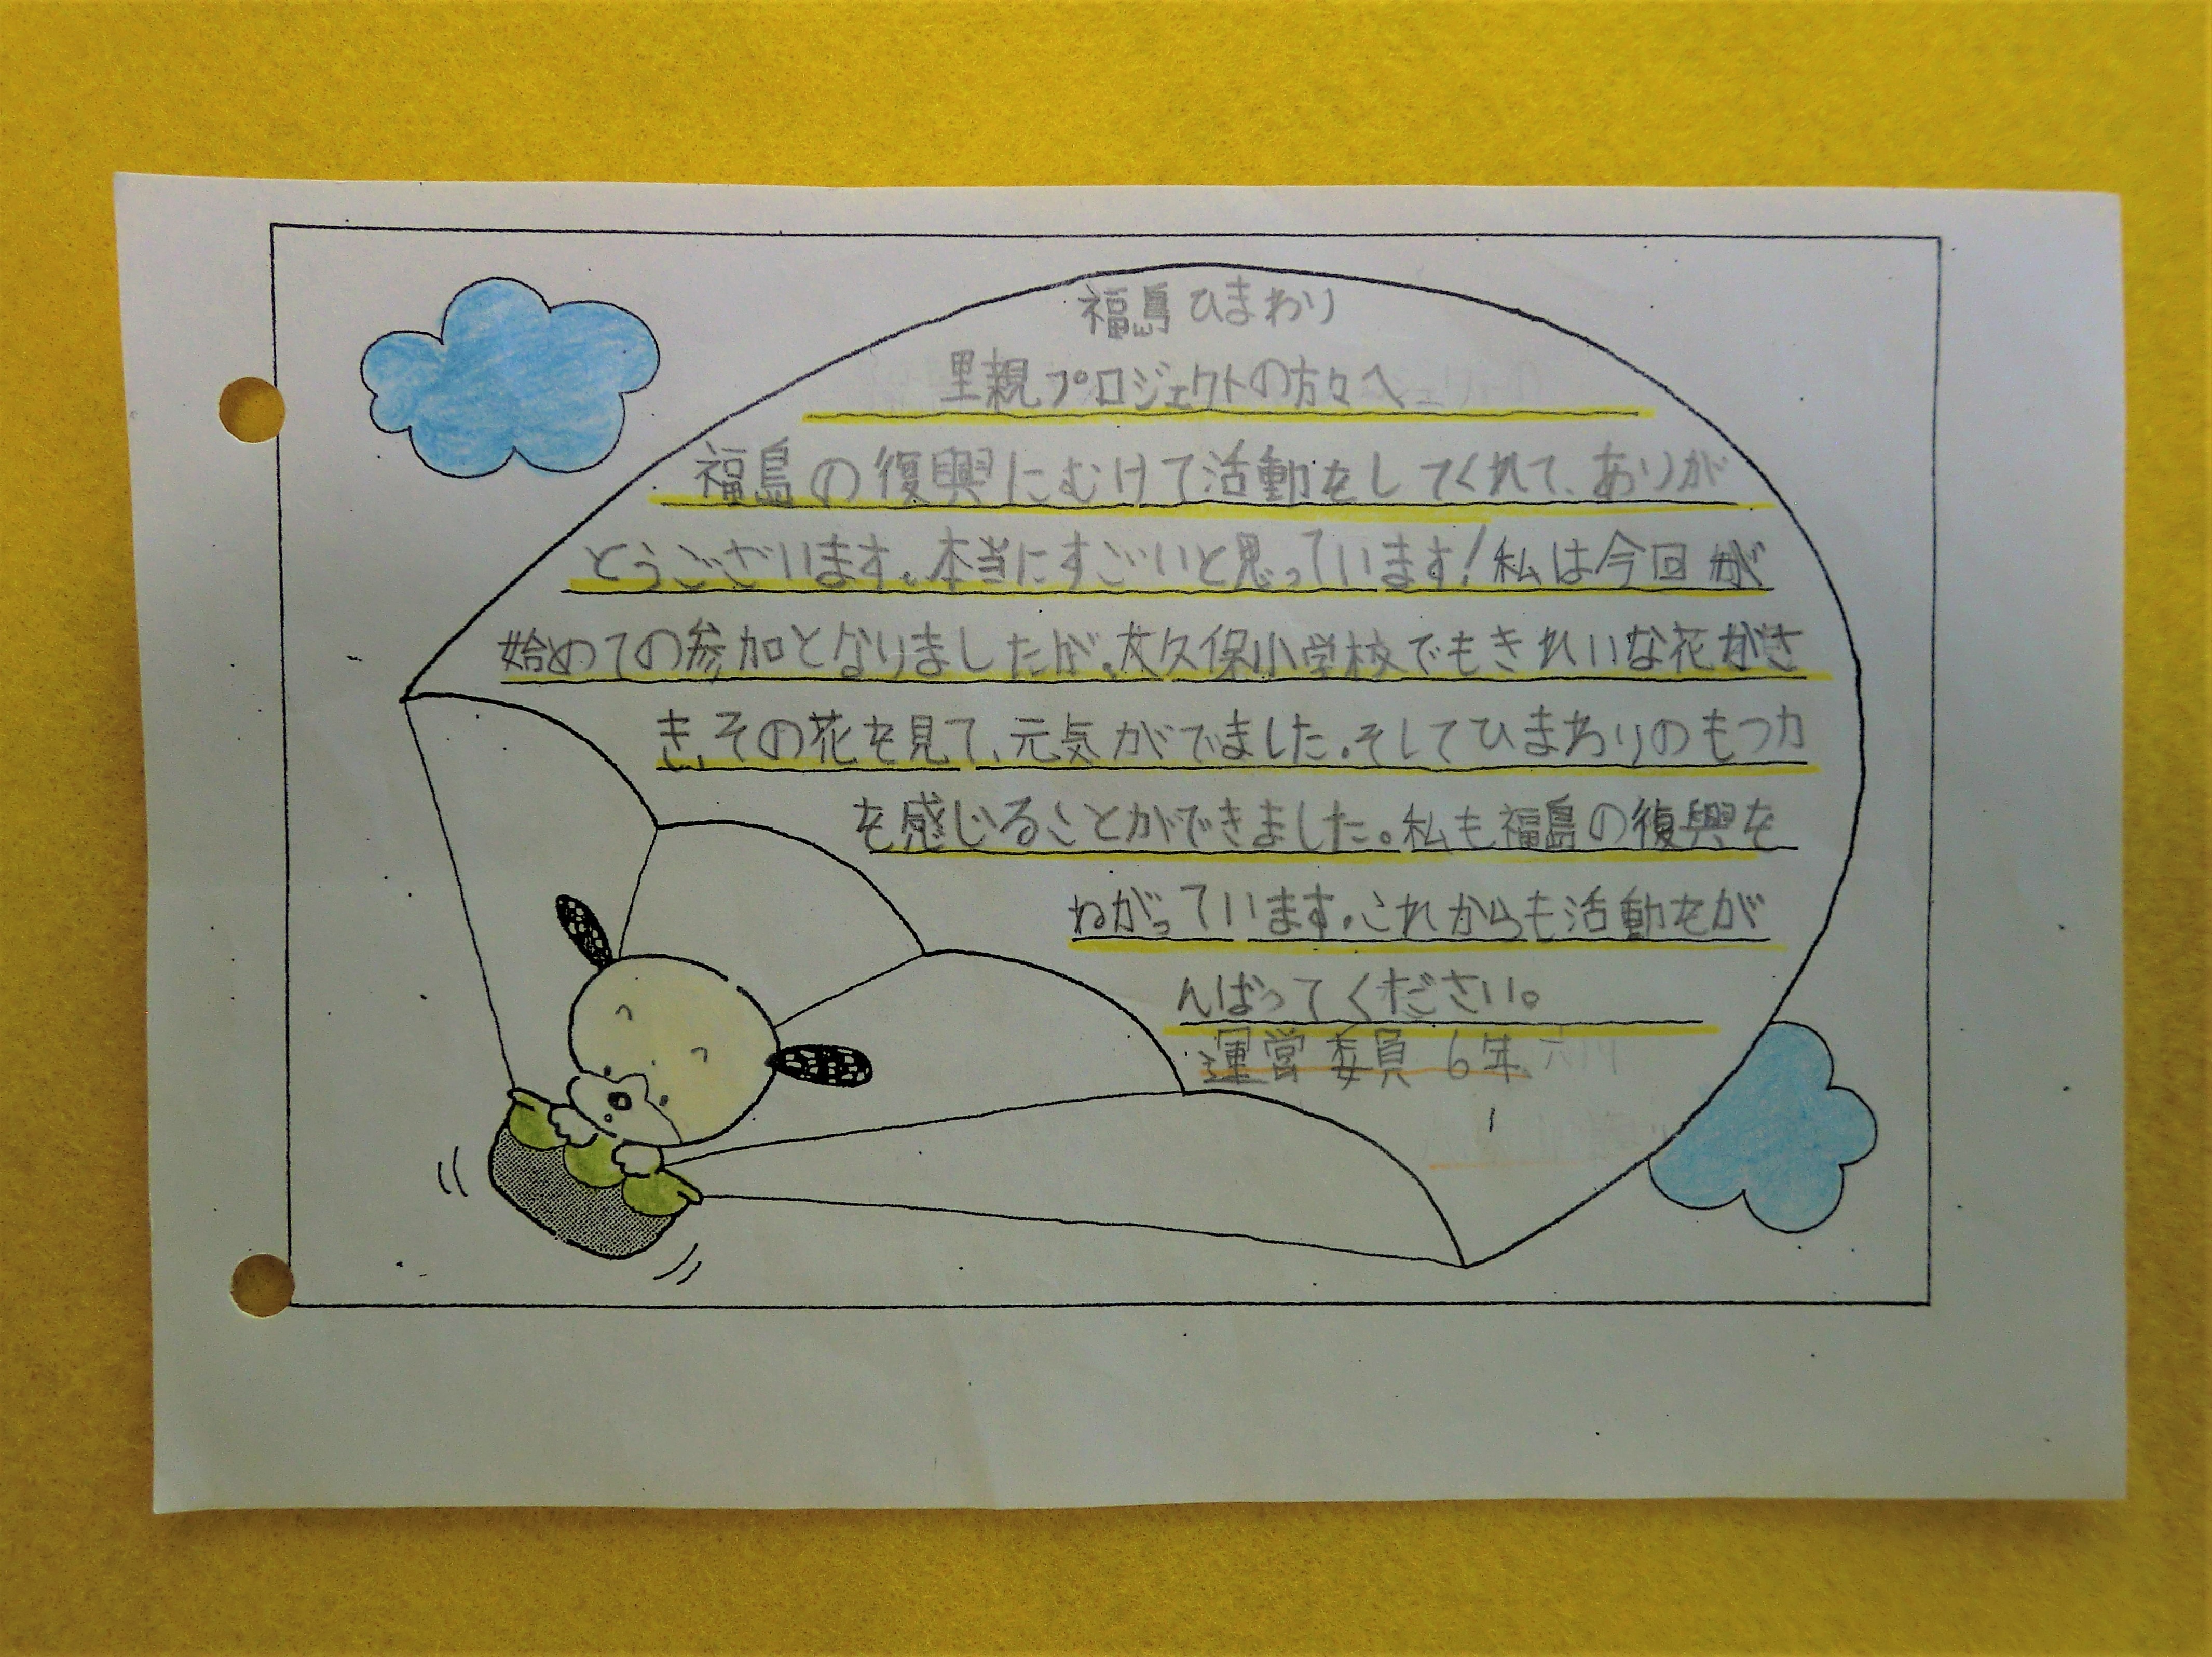 福島ひまわり
里親プロジェクトの方々へ
福島の復興にむけて活動をしてくれて、ありが
とうございます。本当にすごいと思っています!私は今回が
始めての参加となりましたが、大久保小学校でもきれいな花がさ
き、その花を見て、元気がでました。そしてひまわりのもつ力
を感じることができました。私も福島の復興を
ねがっています。これからも活動をが
んばってください。
運営委員 6年